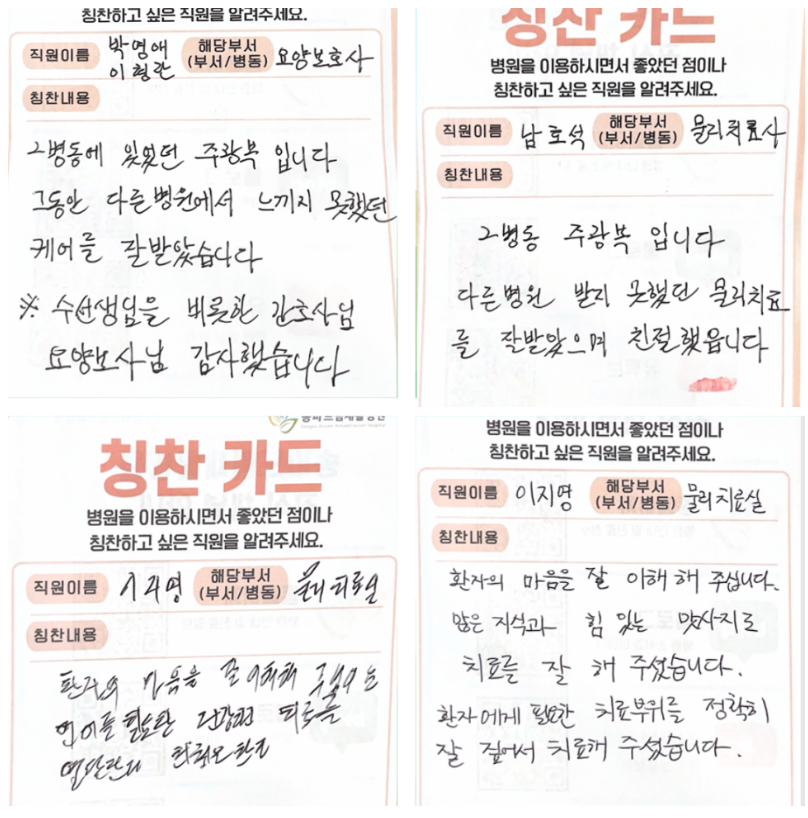 칭찬하고 싶은 직원을 알려주세요.
직원이름 박영애 이형란 해당부서 (부서/병동) 요양보호사
칭찬내용
그병동에 있었던 주광복 입니다
그동안 다른병원에서 느끼지 못했던
케어를 잘받았습니다
※ 수선생님을 비롯한 간호사님
요양보사님 감사했습니다
칭찬 카드
병원을 이용하시면서 좋았던 점이나
칭찬하고 싶은 직원을 알려주세요.
직원이름 남호석 해당부서 (부서/병동) 물리치료사
칭찬내용
그병동 주광복 입니다
다른병원 받지 못했던 물리치료
를 잘받았으며 친절했읍니다
칭찬 카드
병원을 이용하시면서 좋았던 점이나
칭찬하고 싶은 직원을 알려주세요.
직원이름 이지영 해당부서 (부서/병동) 물리치료실
칭찬내용
환자의 마음을 잘 이해해
치료를
병원을 이용하시면서 좋았던 점이나
칭찬하고 싶은 직원을 알려주세요.
직원이름 이지영 해당부서 (부서/병동) 물리치료실
칭찬내용
환자의 마음을 잘 이해 해 주십니다.
많은 지식과 힘 있는 맛사지로
치료를 잘 해 주셨습니다.
환자에게 필요한 치료부위를 정확히
잘 짚어서 치료해 주셨습니다.